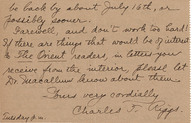 be back by about July 16th, or
possibly sooner.
Farewell, and don't work too hard!
If there are things that would be of interest
to The Orient readers, in letters you
receive from the interior, please let
Dr. MacCallum know about them.
Yours very cordially
Charles T. Riggs.
Tuesday p.m.